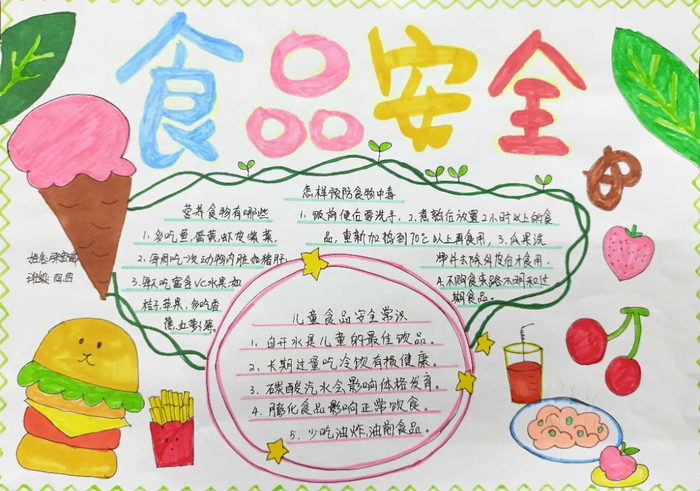 食品安全
营养食物有哪些
1、多吃鱼,蛋黄,虾皮
2、每周吃一次动物内脏如猪肝
3、每天吃富含VC水果如
桔子、苹果,多吃
怎样预防食物中毒
1、饭前便后要洗手,2、煮熟后放置2小时以上的食
品,重新加热到70℃以上再食用,3、瓜果洗
净并去除外皮后才食用。
4、不购食来路不明和过
期食品。
班级:四
儿童食品安全常识
1、白开水是儿童的最佳饮品。
2、长期过量吃冷饮有损健康。
3、碳酸汽水会影响体格发育。
4、膨化食品影响正常饮食。
5、少吃油炸,油焖食品。